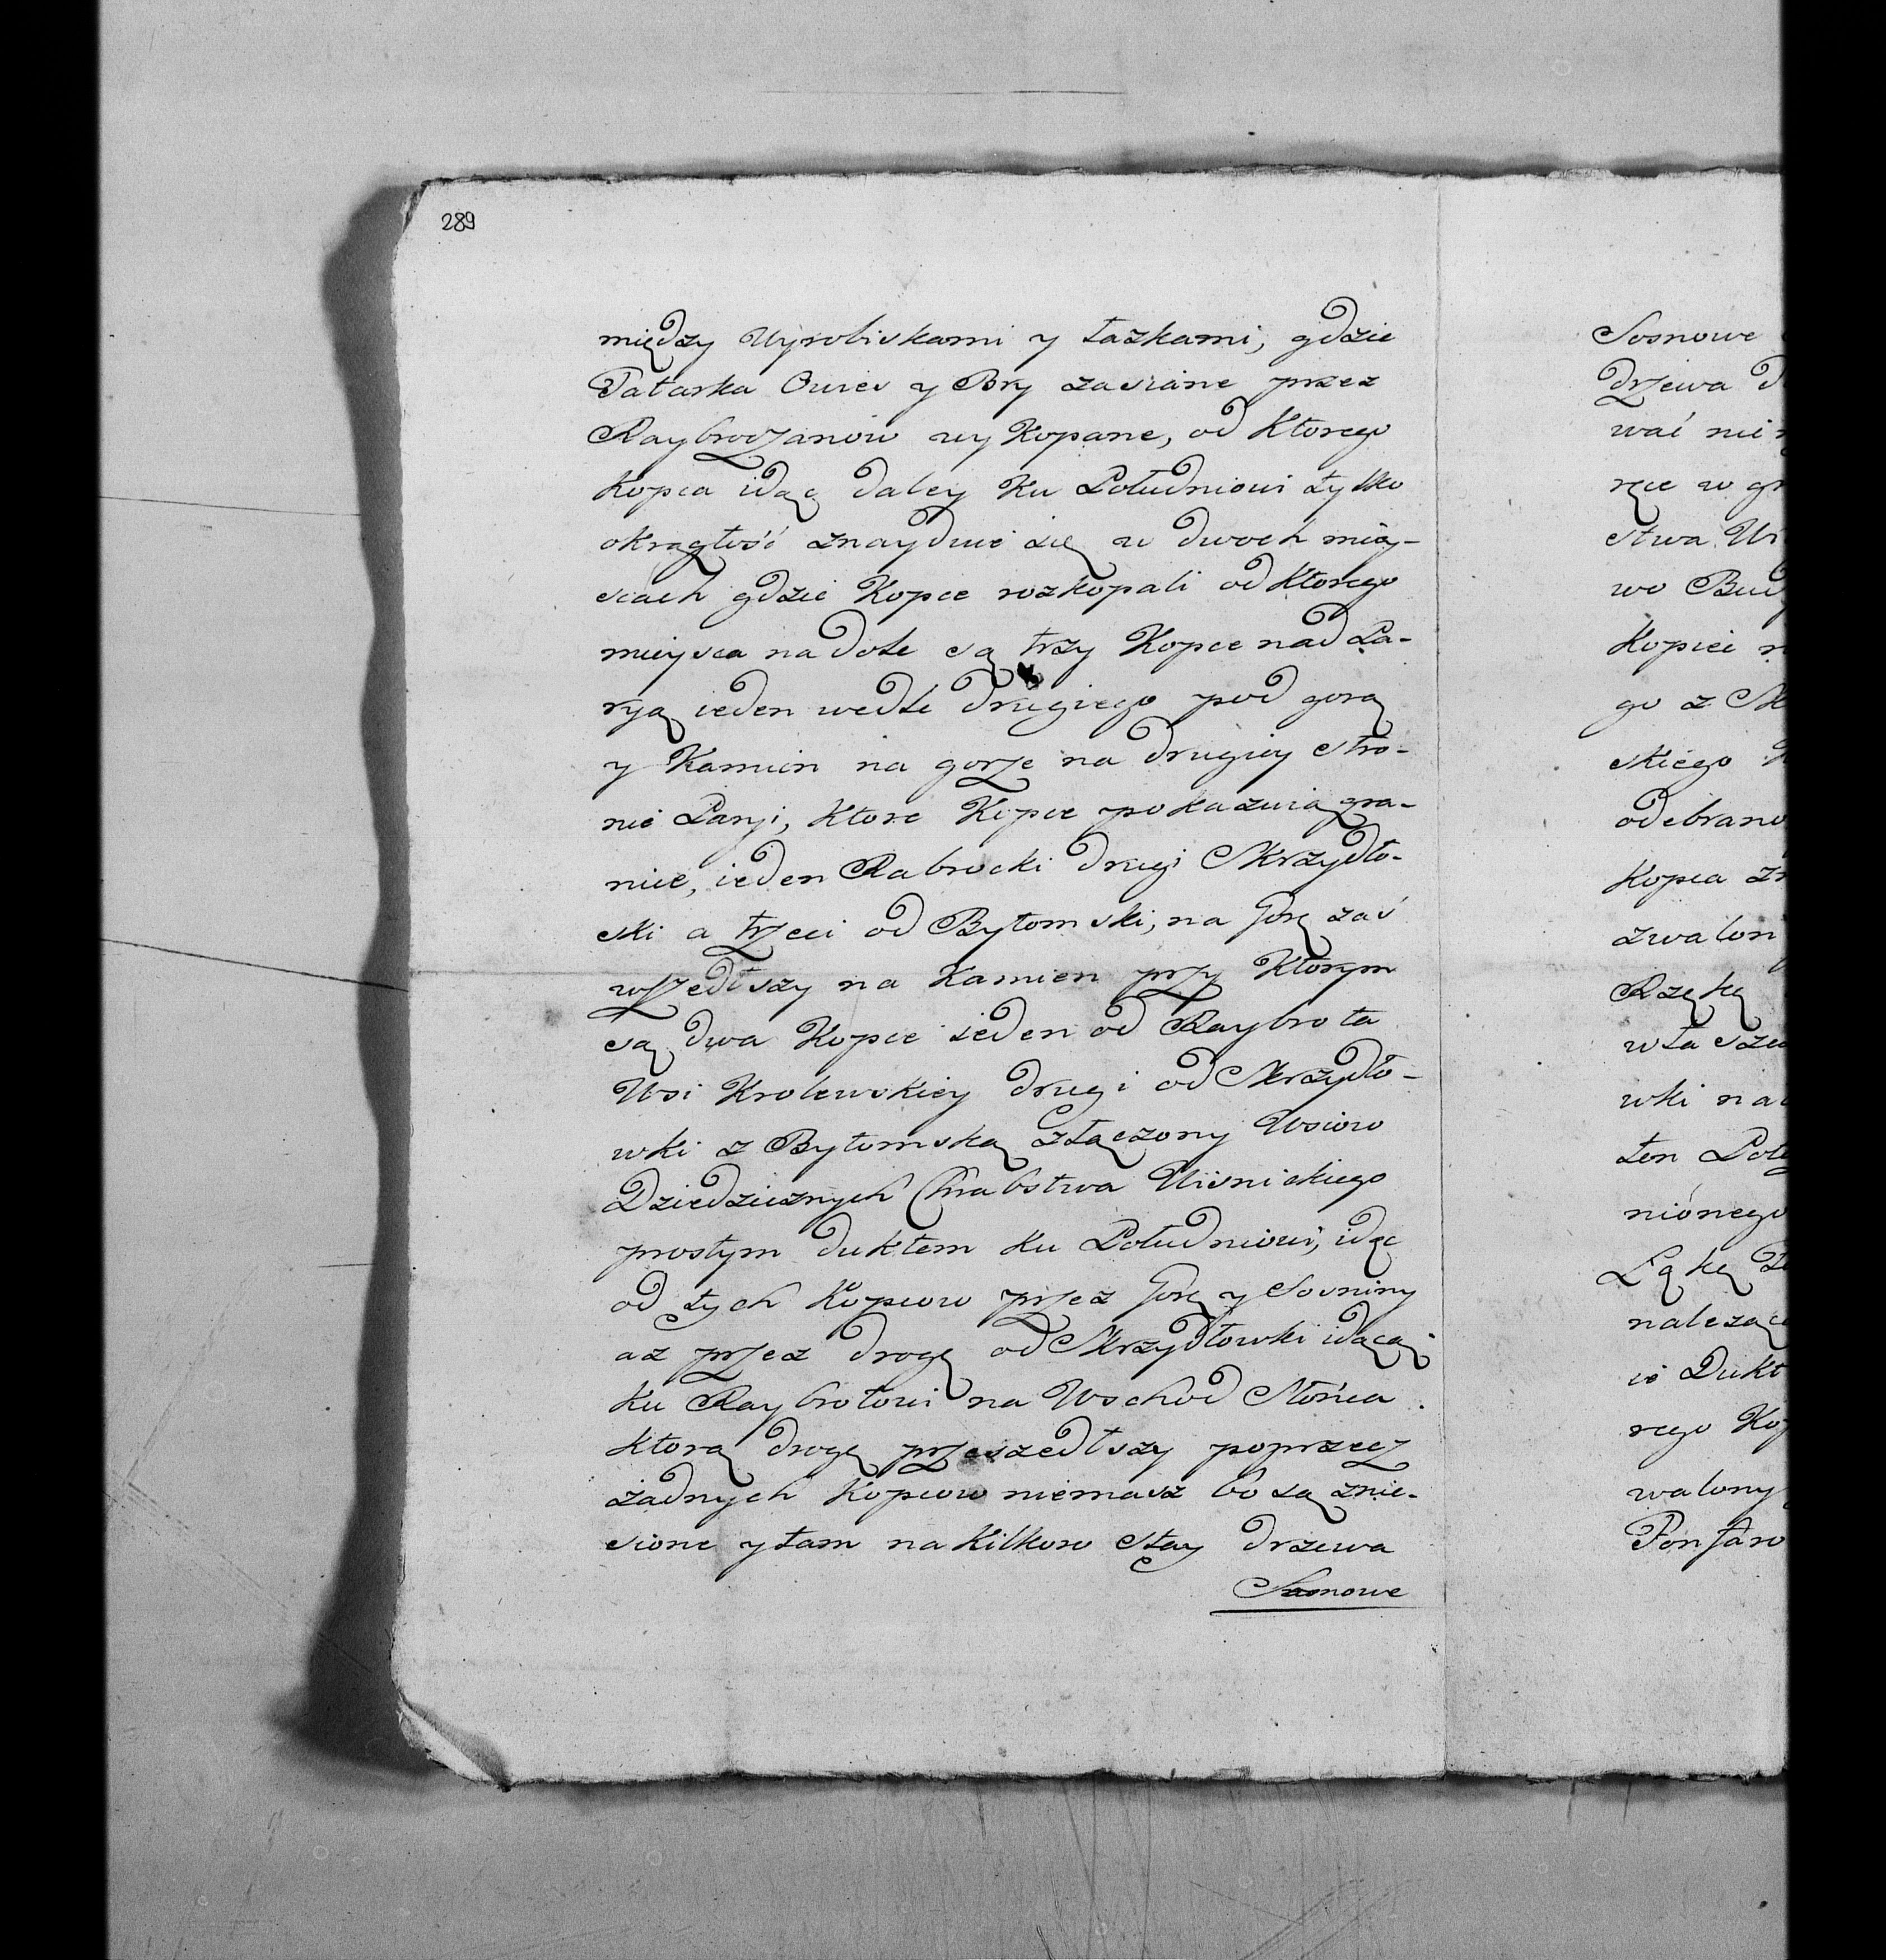 289
między Wyrobiskami y łazkami, gdzie
Tatarka Owies y Bry zasiane przez
Raybroczanow wykopane, od Ktorego
Kopca idąc daley Ku Południowi tylko
okrągłość znayduie się w dwoch miey-
scach gdzie Kopce rozkopali od Ktorego
mieysca na dole są trzy Kopce nad Pa-
ryą ieden wedle drugiego pod gorą
y Kamien na gorze na drugiey stro-
nie Paryi, Ktore Kopce pokazuią gra-
nice, ieden Rabrocki drugi Skrzydło-
ski a trzeci od Bytomski, na Gorę zaś
wszedłszy na Kamien przy Ktorym
są dwa Kopce ieden od Raybrota
Wsi Krolewskiey drugi od Skrzydło-
wki z Bytomską złączony Wsiow
Dziedzicznych Chrabstwa Wisnickiego
prostym duktem Ku Południowi, idąc
od tych Kopcow przez Gorę y Sosniny
az przez drogę od Skrzydłowki idącą
Ku Raybrotowi na Wschod Słońca
Ktorą drogę przeszedłszy poprzecz
żadnych Kopcow niemasz bo są znie-
sione y tam na Kilkoro Stay drzewa
Sosnowe
Sosnowe
drzewa
wać nie
ręce w
stwa
wo
Kopiec
go z
skiego
odebrano
Kopca
zwalon
Rzękę
wła
wki
ten
nionego
Łąkę
należące
Dukt
rego
walony